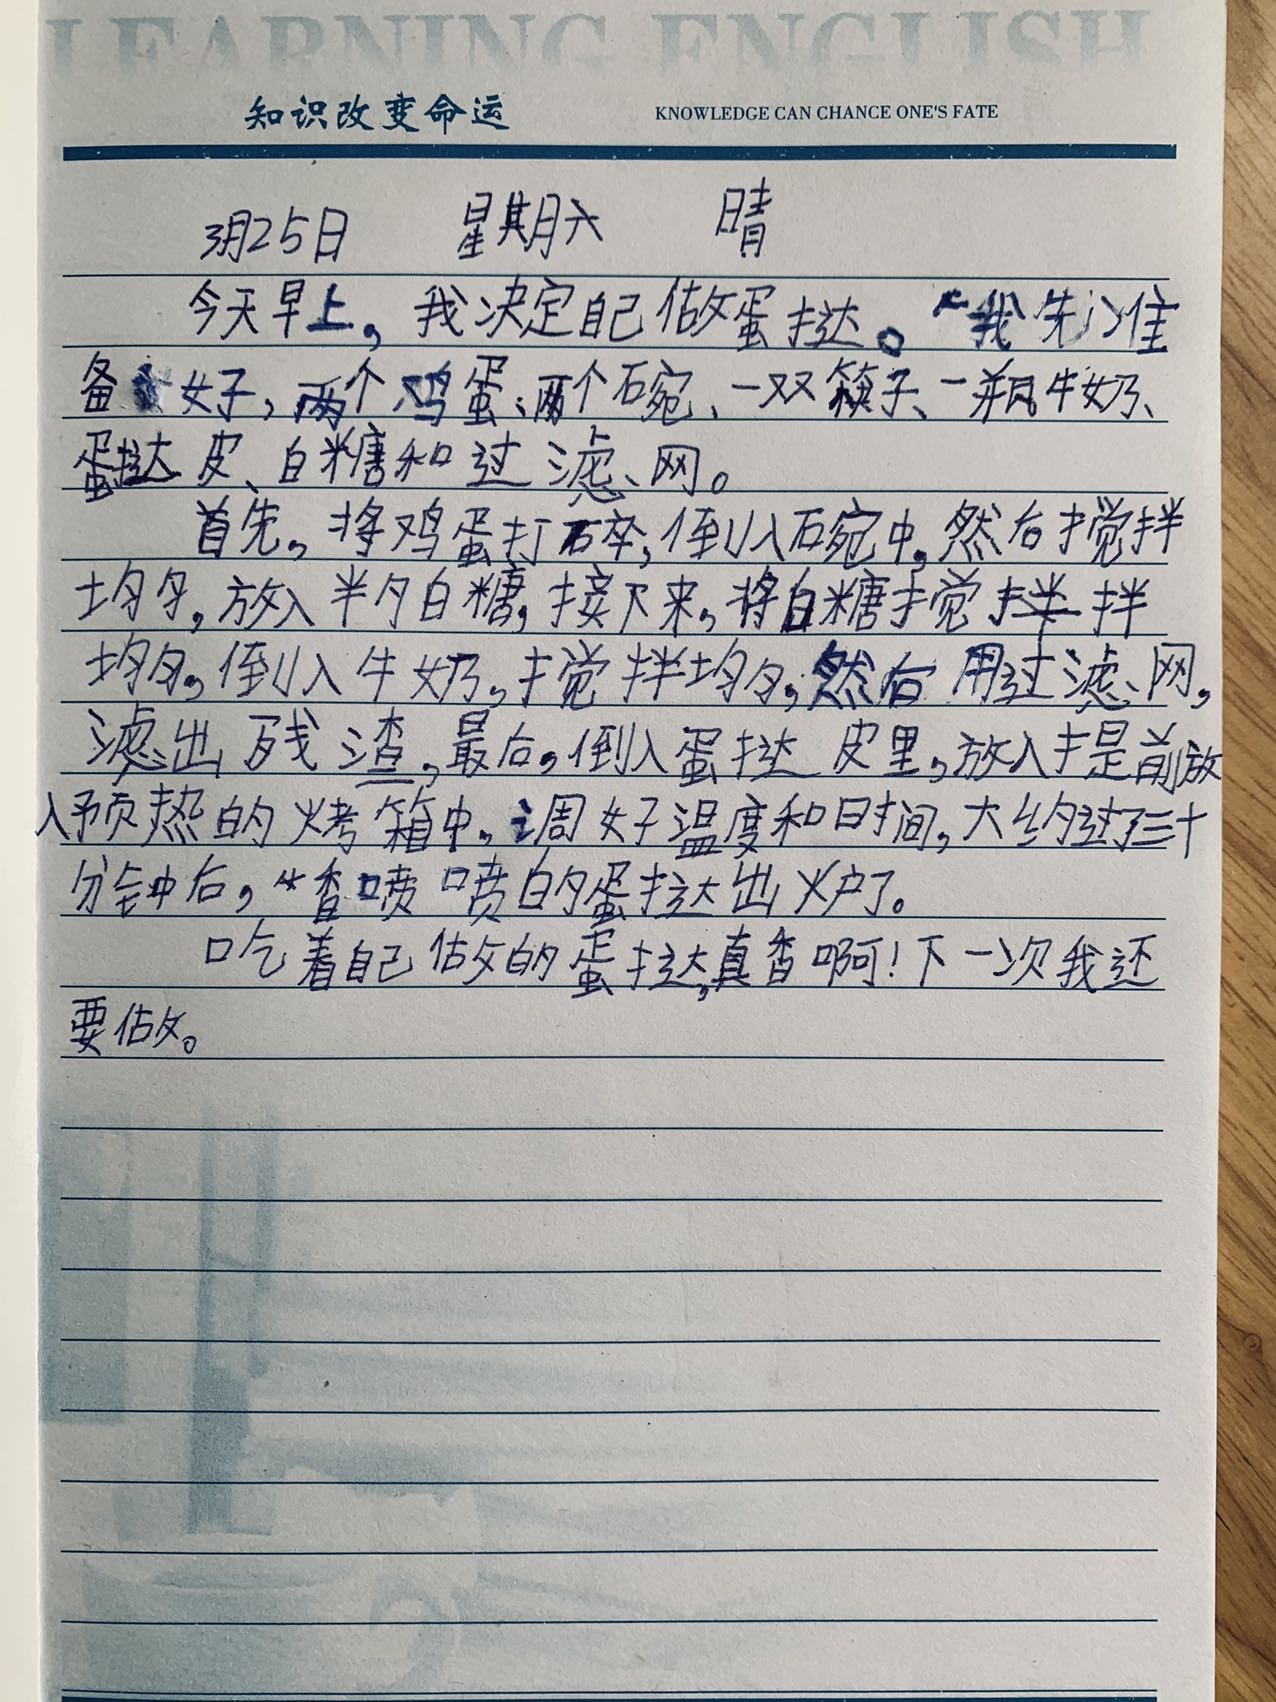 LEARNING ENGLISH
知识改变命运 KNOWLEDGE CAN CHANCE ONE'S FATE
3月25日 星期六 晴
今天早上，我决定自己做蛋挞。我先准
备好，两个鸡蛋、两个碗、一双筷子、一瓶牛奶、
蛋挞皮、白糖和过滤网。
首先，将鸡蛋打碎，倒入碗中，然后搅拌
均匀，放入半勺白糖，接下来，将白糖搅拌
均匀，倒入牛奶，搅拌均匀，然后用过滤网，
滤出残渣，最后，倒入蛋挞皮里，放入提前放
入预热的烤箱中，调好温度和时间，大约过了三十
分钟后，香喷喷的蛋挞出炉了。
吃着自己做的蛋挞，真香啊！下一次我还
要做。